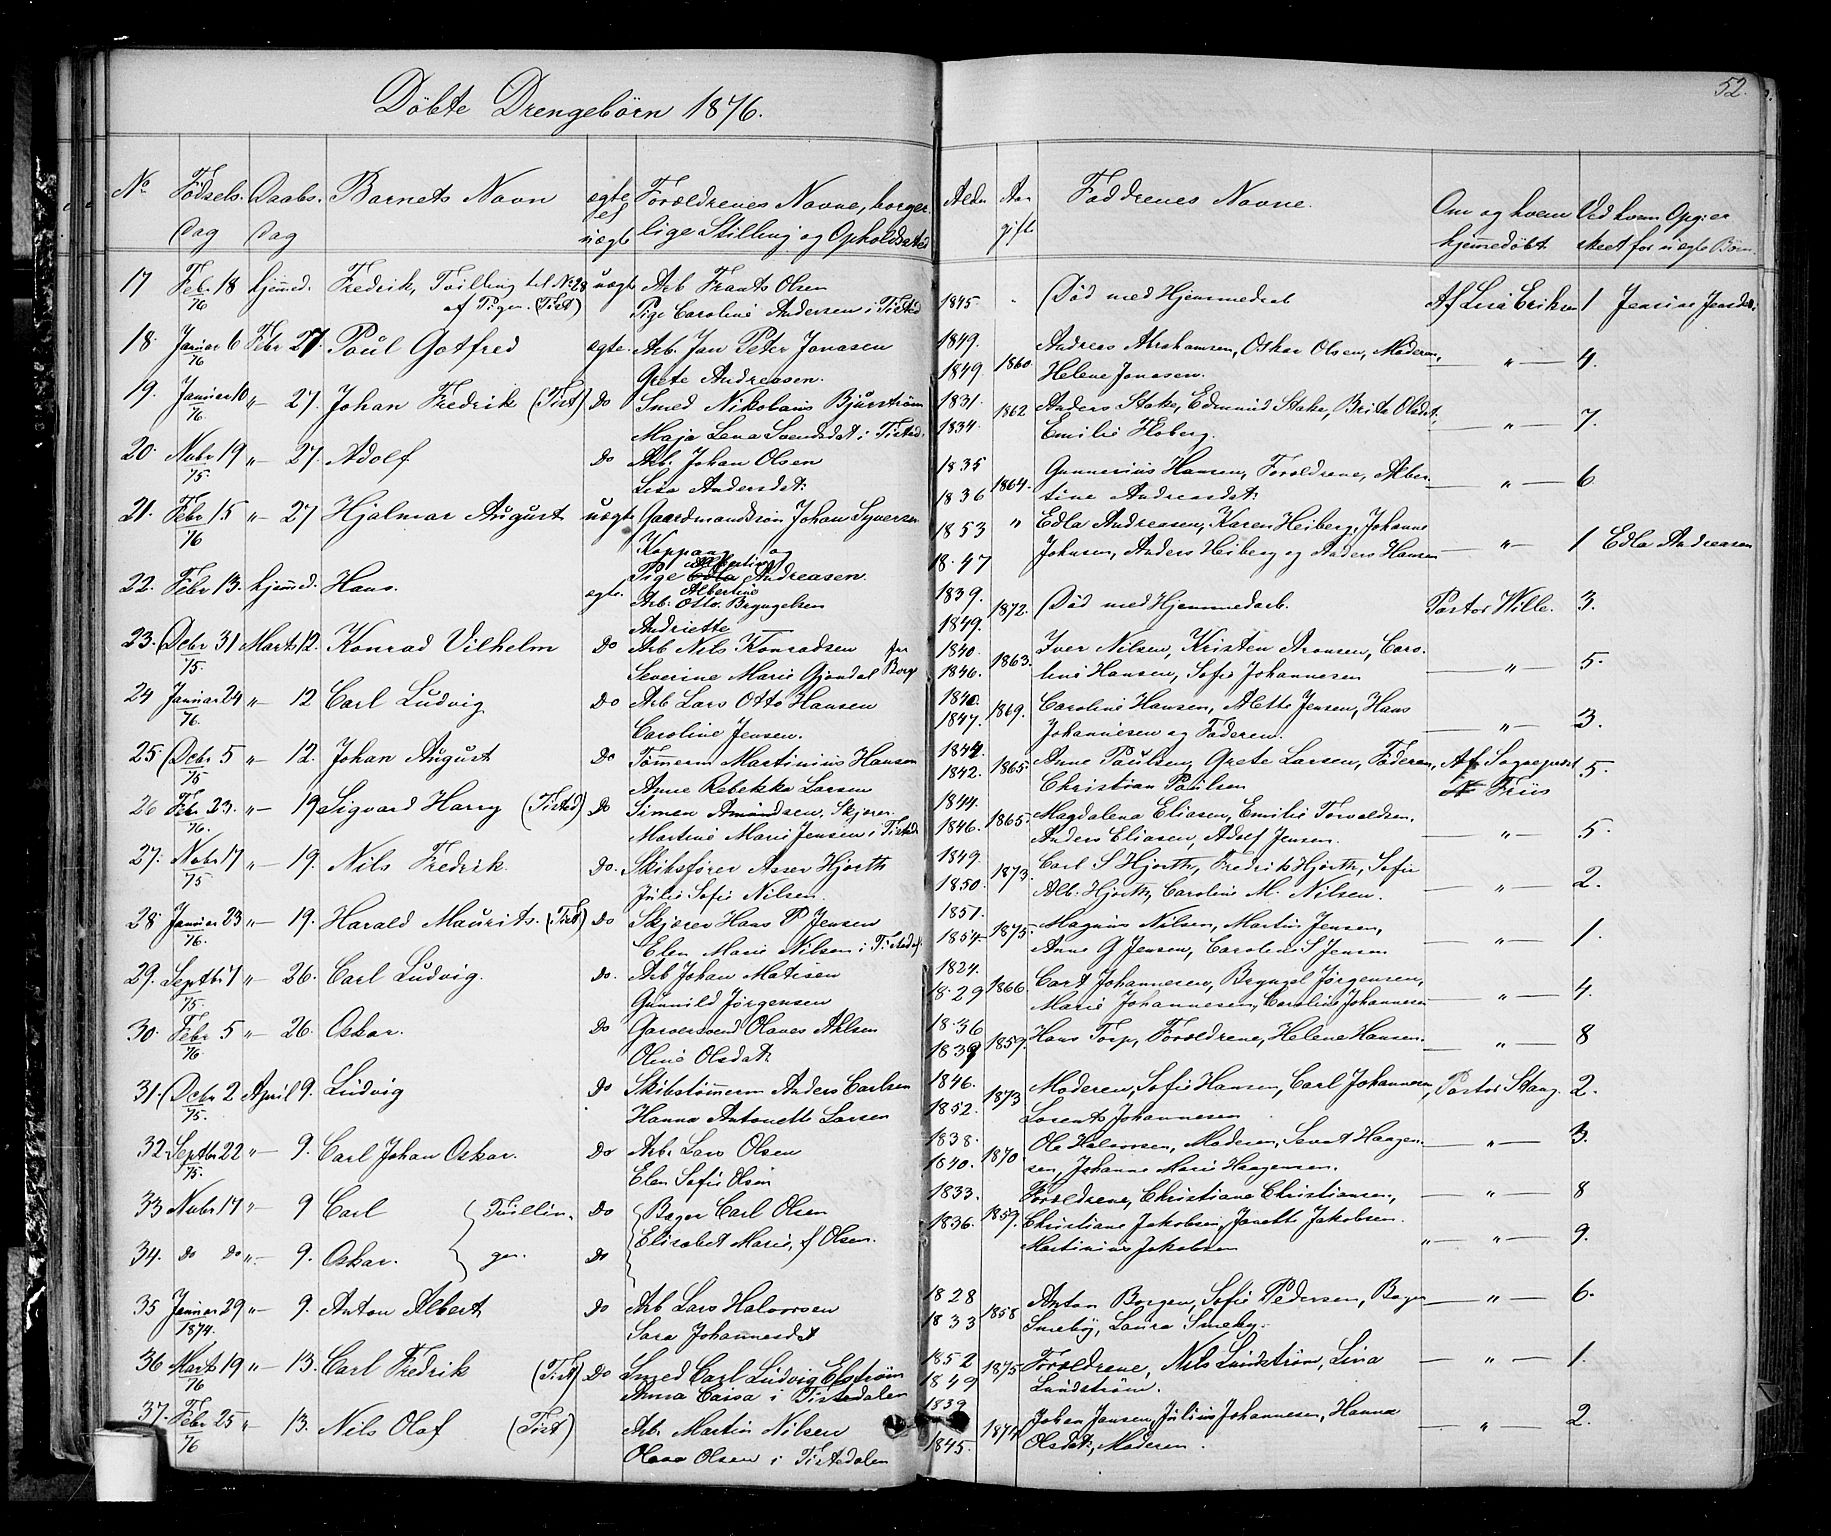 52.
Döbte Drengebörn 1876.
No Födsels Dag Daabs Dag Barnets Navn ægte el uægte Forældrenes Navne, borgerlige Stilling og Opholdssted Alder Aar gift Faddrenes Navne. Om og hvem hjemmedöbt. Ved hvem Opg. er skeet for uægte Börn
17 Febr 18 hjemmed. Fredrik, Tvilling til No 28 uægte Arb Frants Olsen
76 af Pigen. (Tist) Pige Caroline Andersen i Tisted 1845. Död med Hjemmedaab Af Lise Eriksen 1 Jensine Jensdat.
18. Januar 6 Febr 27 Poul Gotfred ægte. Arb. Jan Peter Jonasen 1849. Andreas Abrahamsen, Oskar Olsen, Moderen,
76 Grete Andreasen. 1849 1860 Helene Jonasen. — " — 4.
19. Januar 10 " 27. Johan Fredrik (Tist) Do Smed Nikolaus Bjurström 1831. 1862 Anders Stake, Edmund Stake, Brite Olsdat,
76. Maja Lena Svendsdat i Tisted. 1834. Emilie Floberg. — " — 7.
20. Novbr 19 " 27. Adolf Do Arb. Johan Olsen 1835 Gunnerius Hansen, Forældrene, Alber-
75. Lisa Andersdat: 1836 1864. tine Andreasdat: — " — 6
21. Febr 15 " 27 Hjalmar August uægte Gaardmandssön Johan Syversen 1853 " Edla Andreasen, Karen Heiberg, Johanne
76 Koppang og Johnsen, Anders Heiberg og Anders Hansen — " — 1 Edla Andreasen
Pige Albertine Andreasen. 1847
22. Febr 13. hjemmed. Hans. ægte. Arb. Otto Bryngelsen 1839. 1872. Död med Hjemmedaab. Pastor Wille. 3.
Andriette 1849.
23. Decbr 31 Marts 12. Konrad Vilhelm Do Arb Nils Konradsen 1840. 1863. Iver Nilsen, Kristen Aronsen, Caro-
75. Severine Marie Gjöndal 1846. line Hansen, Sofie Johannesen — " — 5.
24 Januar 24 " 12 Carl Ludvig Do Arb Lars Otto Hansen 1840. 1869. Caroline Hansen, Alette Jensen, Hans
76. Caroline Jensen. 1847. Johannesen og Faderen. — " — 3.
25 Decbr 5 " 12. Johan August Do Tömmerm Martinius Hansen 1844. 1865. Anne Paulsen, Grete Larsen, Faderen, Af Sogneprest
75 Anne Rebekka Larsen 1842. Christian Paulsen Friis 5.
26 Febr 23. " 19 Sigvard Harry (Tisted) Do Simen Amundsen, Skjærer 1844. 1865. Magdalena Eliasen, Emilie Torvoldsen,
76. Martine Marie Jensen i Tisted. 1846. Anders Eliasen, Adolf Jensen. — " — 5.
27. Novbr 17 " 19. Nils Fredrik. Do. Skibsförer Asser Hjorth 1849. 1873. Carl S Hjorth, Fredrik Hjorth, Sofie
75 Julie Sofie Nilsen. 1850. Alb. Hjorth, Caroline M. Nilsen. — " — 2.
28 Januar 23 " 19. Harald Maurits. (Tist) Do Skjærer Hans P Jensen 1851. 1875. Magnus Nilsen, Martin Jensen,
76. Elen Marie Nilsen i Tistedal 1854 Anne G Jensen, Caroline S Jensen — " — 1.
29. Septbr 7 " 26. Carl Ludvig. Do. Arb Johan Matisen 1824. 1866 Carl Johannesen, Bryngel Jörgensen,
75. Gunnild Jörgensen 1829 Marie Johannesen, Caroline Johannesen — " — 4.
30. Febr 5 " 26. Oskar. Do Garversvend Olaves Ahlsen 1836 1859. Hans Torp, Forældrene, Helene Hansen.
76 Oline Olsdat: 1839 — " — 8
31. Decbr 2 April 9. Ludvig Do Skibstömmerm Anders Carlsen 1846. 1873 Moderen, Sofie Hansen, Carl Johannesen, Pastor Stang. 2.
75. Hanna Antonette Larsen 1852. Lorents Johannesen
32. Septbr 22 " 9. Carl Johan Oskar. Do Arb. Lars Olsen 1838. 1870. Ole Halvorsen, Moderen, Haagen- — " — 3.
75. Elen Sofie Olsen 1840. sen, Johanne Marie Haagensen.
33 Novbr 17 " 9 Carl Tvillin- Do Bager Carl Olsen 1833. 1859. Forældrene, Christiane Christiansen, — " — 8
34. do do " 9. Oskar. ger. Do Elisabet Marie, f Olsen. 1836. Christiane Jakobsen, Janette Jakobsen.
Martinius Jakobsen " — " — 9.
35 Januar 29 " 9. Anton Albert Do Arb Lars Halvorsen 1828 1858 Anton Borgen, Sofie Pedersen, Bager — " — 6.
1874. Sara Johannesdat 1833 Smeby, Laura Smeby.
36 Mart 19 " 13. Carl Fredrik (Tist) Do Smed Carl Ludvig Elström 1852 1875 Forældrene, Nils Lundström, Lina — " — 1.
76 Anna Caisa i Tistedalen 1849 Lundström.
37. Febr 25 " 13. Nils Olaf (Tist) Arb. Martin Nilsen 1839 1874 Johan Jansen, Julius Johannesen, Hanna — " — 2.
76 Olava Olsen i Tistedalen 1845. Olsdat, Moderen.